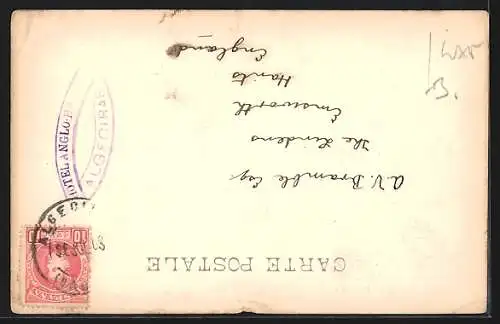 CARTE POSTALE
A.V. Bramble Esq.
The Lindens
Emsworth
Hants
England
HOTEL ANGLO-H
ALGECIRAS
ALGECI
10
B.